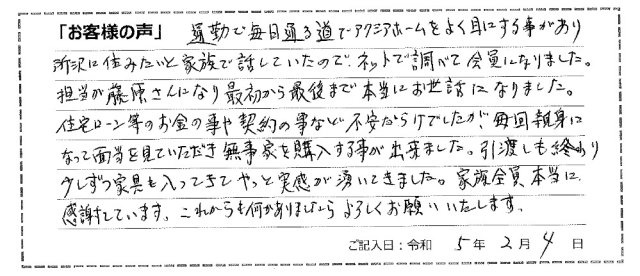 「お客様の声」 通勤で毎日通る道でアクアホームをよく耳にする事があり
所沢に住みたいと家族で話していたので、ネットで調べて会員になりました。
担当が藤原さんになり最初から最後まで本当にお世話になりました。
住宅ローン等のお金の事や契約の事など不安だらけでしたが、毎回親身に
なって面当を見ていただき無事家を購入する事が出来ました。引渡しも終わり
少しずつ家具も入ってきてやっと実感が湧いてきました。家族全員本当に
感謝しています。これからも何かありましたらよろしくお願いいたします。
ご記入日：令和 5年 2月 4日